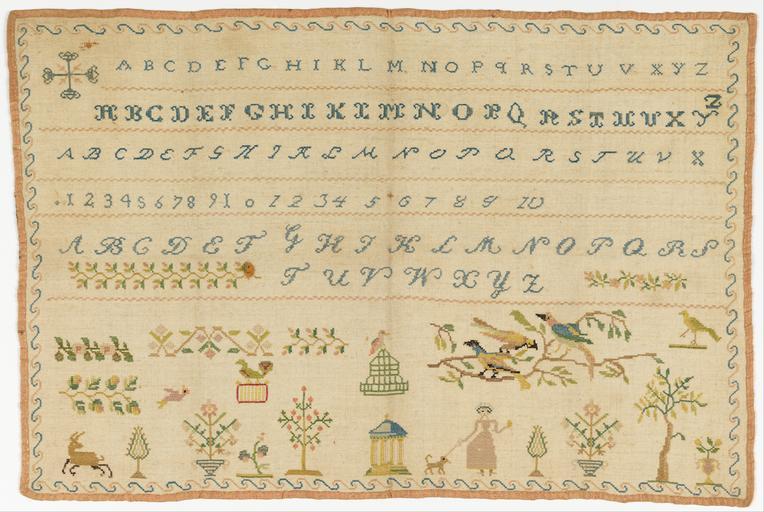 A B C D E F G H I K L M N O P q R S T U V X Y Z
A B C D E F G H I K L M N O P Q R S T U V X Y Z
A B C D E F G H I K L M N O P Q R S T U V X
1 2 3 4 5 6 7 8 9 1 0 1 2 3 4 5 6 7 8 9 10
A B C D E F G H I K L M N O P Q R S
T U V W X Y Z